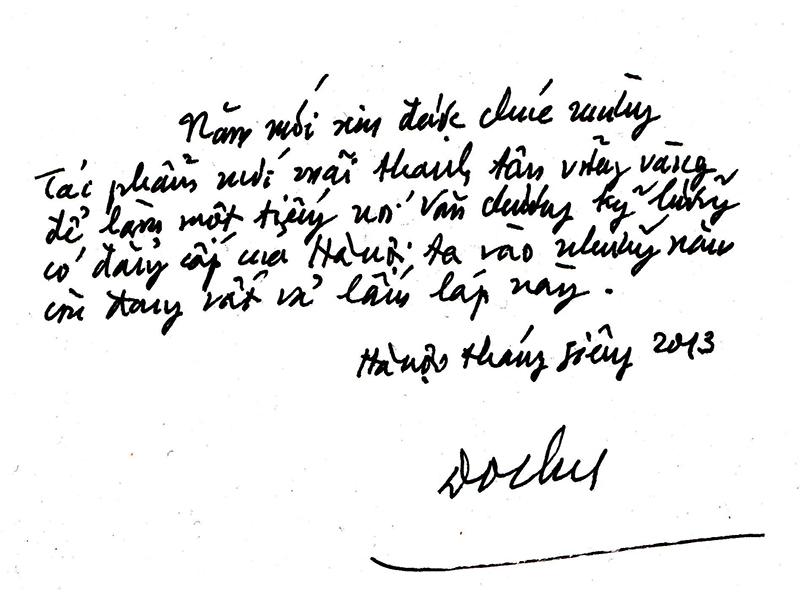 Năm mới xin được chúc mừng
Tác phẩm mới mãi thanh tân vững vàng
để làm một tiếng nói văn chương kỹ lưỡng
có đẳng cấp của Hà Nội ta vào những năm
còn đang vất vả lấm láp này.
Hà Nội tháng giêng 2013